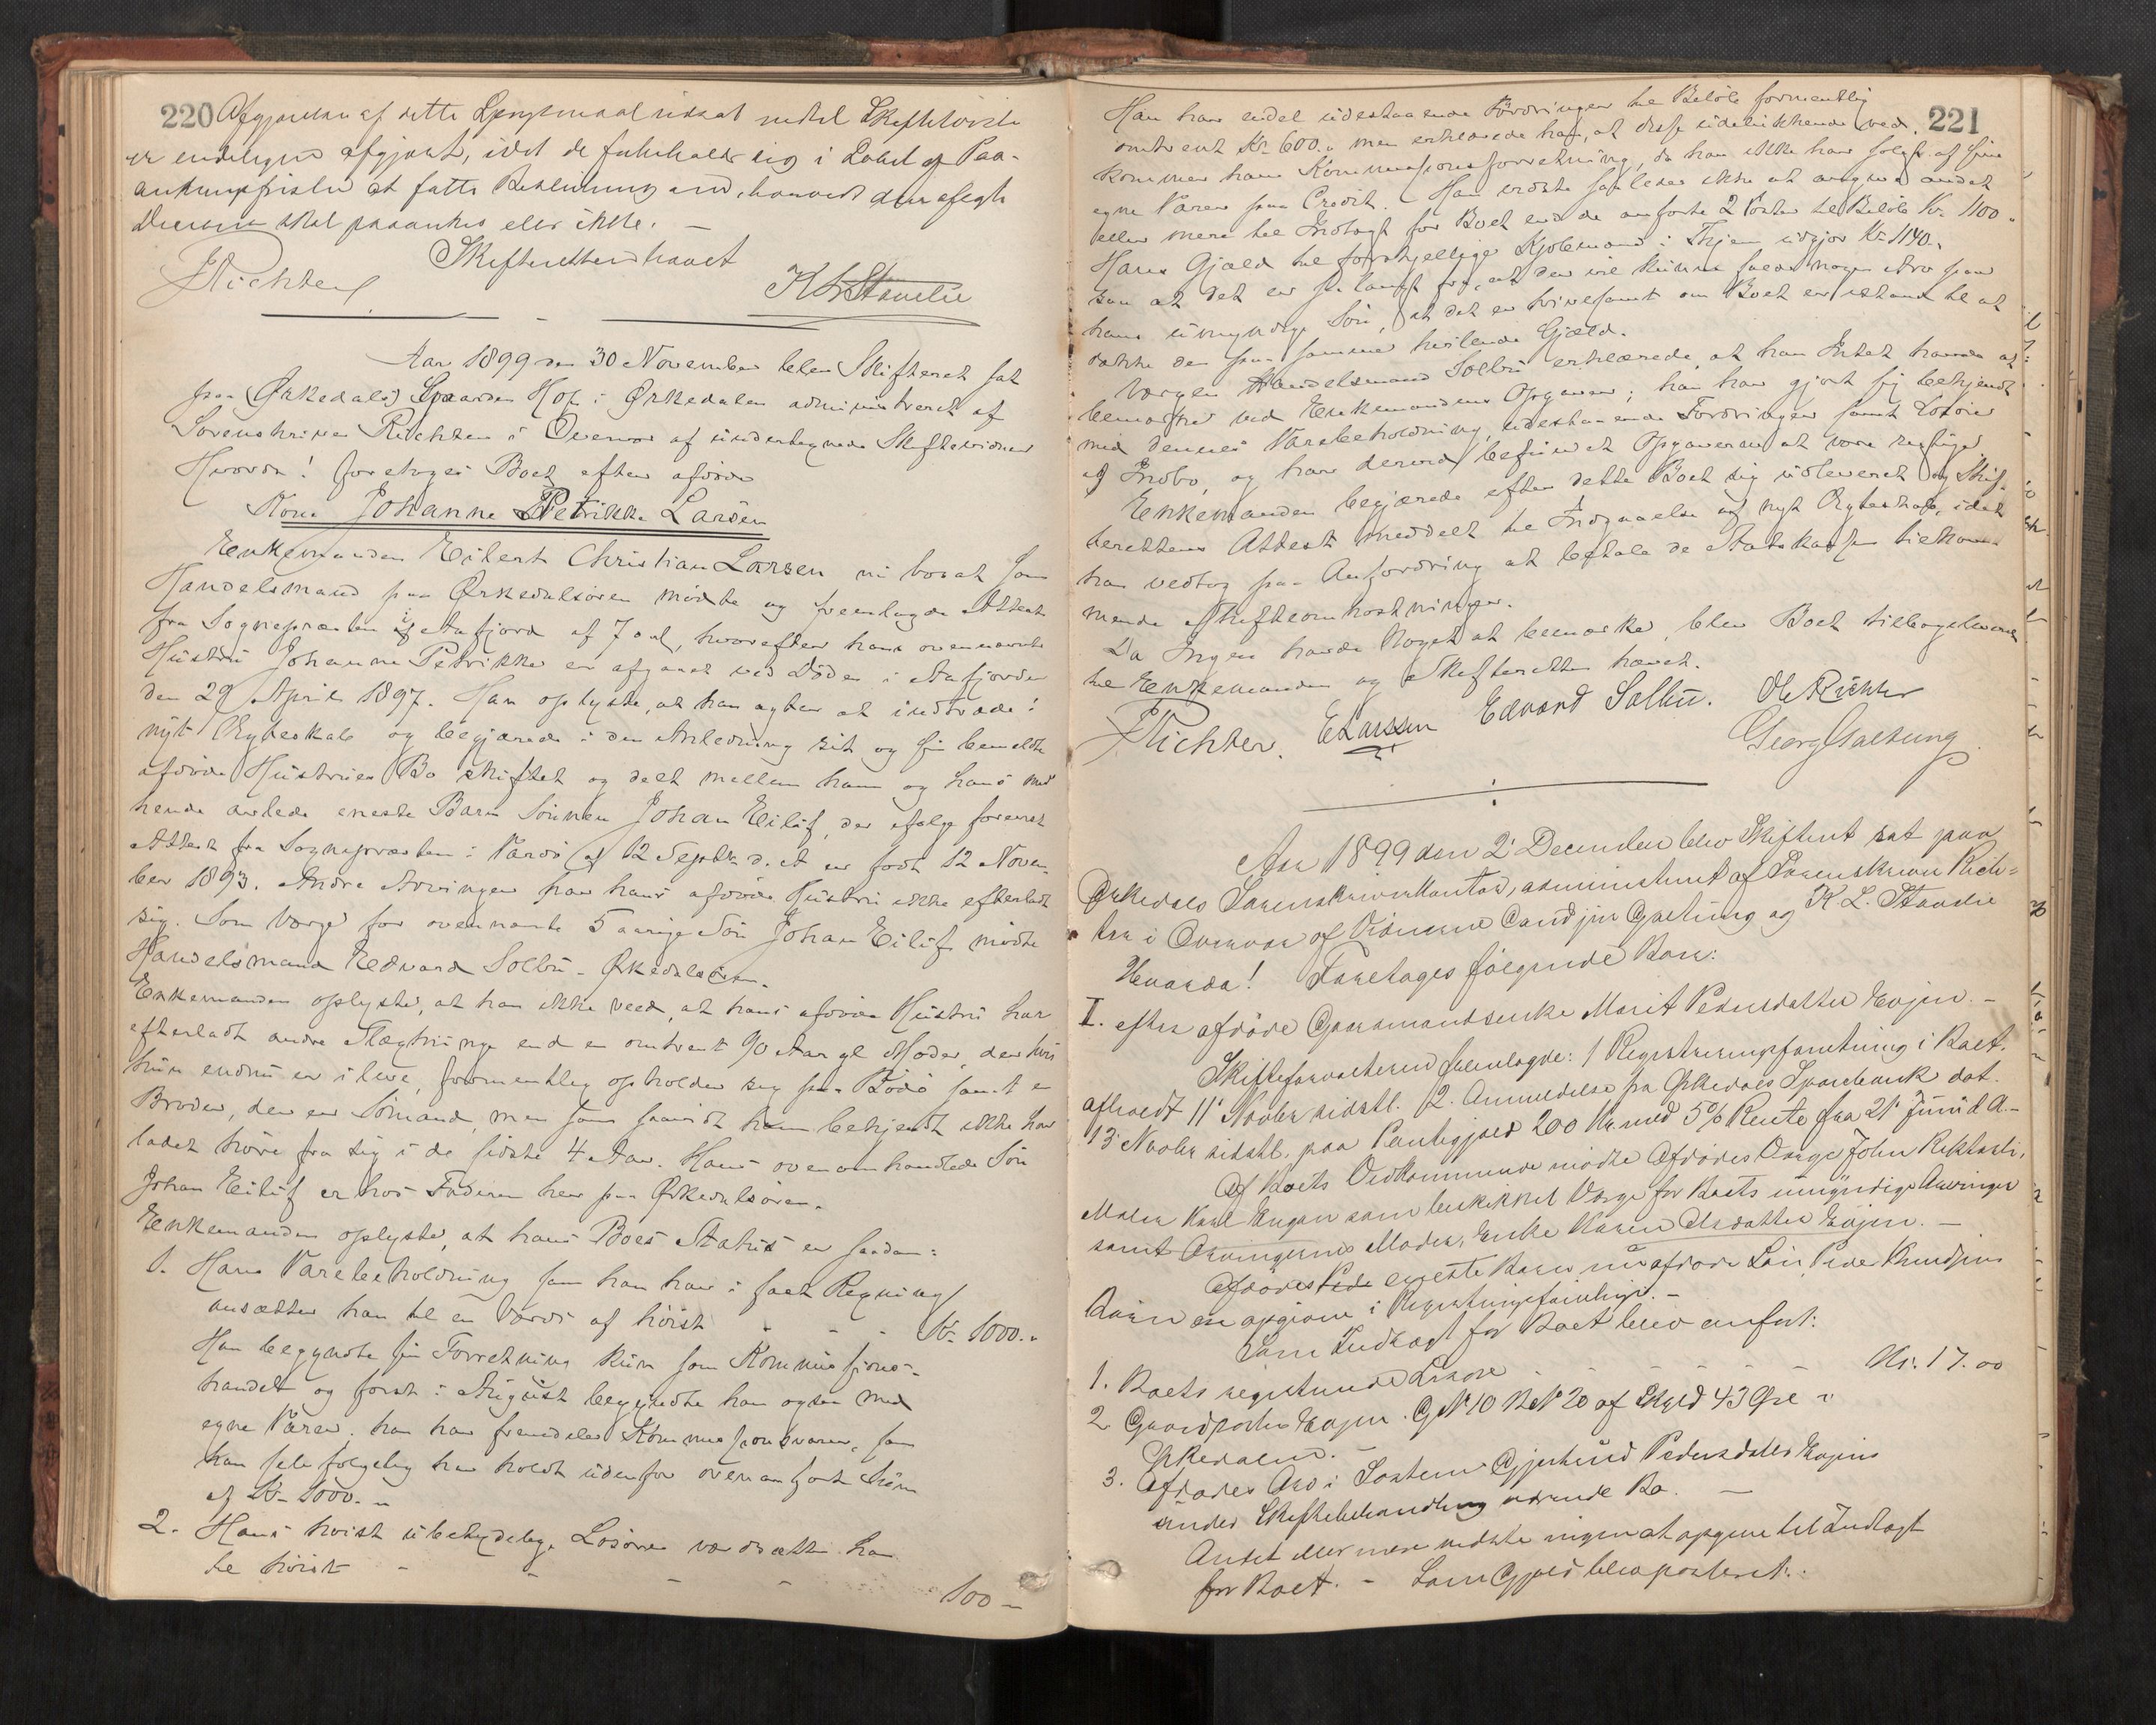 220 Afgjørelsen af dette Spørgsmaal udsat indtil Skiftetvisten
er endeligen afgjort, idet de forbeholdt sig i Løbet af Paa-
ankningsfristen at fatte Beslutning om, hvorvidt den afsagte
Decision skal paaankes eller ikke. —
Skifteretten hævet
Richter K L Staveli
Aar 1899 den 30 November blev Skifteret sat
paa Ørkedals Gaarden Hof i Ørkedalen administreret af
Sorenskriver Richter i Overvær af undertegnede Skiftevidner
Hvorda! foretoges Boet efter afdøde
Kone Johanne Petrikke Larsen
Enkemanden Eilert Christian Larsen nu bosat som
Handelsmand paa Ørkedalsøren mødte og fremlagde Attest
fra Sognepræsten i Aafjord af 7 , hvorefter hans ovennævnte
Hustru Johanne Petrikke er afgaaet ved Døden i Aafjorden
den 29 April 1897. Han oplyste, at han agter at indtræde i
nyt Ægteskab og begjærede i den Anledning sit og sin bemeldte
afdøde Hustrues Bo skiftet og delt mellem ham og hans med
hende avlede eneste Barn Sønnen Johan Eiluf, der ifølge forevist
Attest fra Sognepræsten i Vardø af 12 Septbr d. A. er født 12 Novem-
ber 1893. Andre Arvinger har hans afdøde Hustru ikke efterladt
sig. Som Værge for ovennævnte 5 aarige Søn Johan Eiluf mødte
Handelsmand Edvard Solbu - Ørkedalsøren.
Enkemanden oplyste, at han ikke veed, at hans afdøde Hustru har
efterladt andre Slægtninge end en omtrent 90 Aar gl Moder, der hvis
hun endnu er ilive, formentlig opholder sig paa Bodø samt en
Broder, der er Sømand, men som saavidt ham bekjendt ikke har
ladet høre fra sig i de sidste 4 Aar. Hans ovenomhandlede Søn
Johan Eiluf er hos Faderen her paa Ørkedalsøren.
Enkemanden oplyste, at hans Boes Status er saadan:
1. Hans Varebeholdning som han har i fast Regning
ansætter han til en Værdi af høist - - - Kr. 1000. "
Han begyndte sin Forretning kun som Kommissions-
handel og først i August begyndte han ogsaa med
egne Varer. han har fremdeles Kommissionsvarer, som
han selvfølgelig har holdt udenfor ovenanførte Sum
af Kr 1000. "
2. Hans høist ubetydelige Løsøre værdsætter han
til høist - - - - 100 —
221
Han har endel udestaaende Fordringer til Beløb formentlig
omtrent Kr 600. " men erklærede han, at disse udelukkende ved-
kommer hans Kommissionsforretning, da han ikke har solgt af sine
egne Varer paa Credit. Han vidste saaledes ikke at angive andet
eller mere til Indtægt for Boet end de anførte 2 Poster til Beløb Kr. 1100 "
Hans Gjæld til forskjellige Kjøbmænd i Thjem udgjør Kr 1140.
saa at det er saa langt fra, at der vil kunne falde nogen Arv paa
hans umyndige Søn, at det er tvivlsomt om Boet er istand til at
dække den paa samme hvilende Gjæld.
Værgen Handelsmand Solbu erklærede, at han Intet havde at
bemærke ved Enkemandens Opgaver; han har gjort sig bekjendt
med dennes Varebeholdning, udestaaende Fordringer samt Løsøre
og Indbo, og har derved befundet Opgaverne at være rigtige.
Enkemanden begjærede efter dette Boet sig udleveret og Skif-
terettens Attest meddelt til Indgaaelse af nyt Ægteskab, idet
han vedtog paa Anfordring at betale de Statskassen tilkom-
mende Skifteomkostninger.
Da Ingen havde Noget at bemærke, blev Boet tilbageleveret
til Enkemanden og Skifteretten hævet.
Richter. E Larssen Edvard Solbu. Ole Richter
Georg Gaetung
Aar 1899 den 2 December blev Skifteret sat paa
Ørkedals Sorenskriverkontor, administreret af Sorenskriver Rich-
ter i Overvær af Vidnerne Cand jur Gaetung og K L. Staveli
Hvorda! Foretoges følgende Boer:
I. efter afdøde Gaardmandsenke Marit Pedersdatter Evjen. —
Skifteforvalteren fremlagde: 1 Registreringsforretning i Boet.
afholdt 11 Novbr sidstl. 2. Anmeldelse fra Ørkedals Sparebank dat.
13 Novbr sidstl. paa Pantegjæld 200 Kr med 5% Rente fra 21 Juni d A. -
Af Boets Vedkommende mødte Afdødes Værge John Rikstad,
Maler Karl Angan som beskikket Værge for Boets umyndige Arvinger
samt Arvingernes Moder, Enke Karen Olsdatter Evjen. —
Afdødes eneste Barn nu afdøde Søn Peder Knudsens
Børn er opgivne i Registreringsforretningen. —
Som Indtægt for Boet blev anført:
1. Boets registrerede Løsøre - - - - - Kr. 17.00
2 Gaardparten Evjen. G No 10 B No 20 af Skyld 43 Øre i
Ørkedalen. —
3. Afdødes Arv i Søsteren Gjertrud Pedersdatter Evjens
under Skiftebehandling værende Bo. —
Andet eller mere vidste ingen at opgive til Indtægt
for Boet. - Som Gjæld blev posteret: